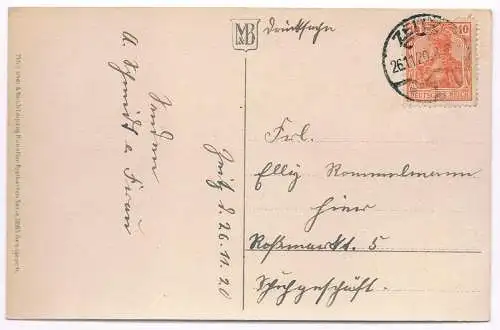 MB
&D
Drucksache
ZEITZ
26.11.20.
10
DEUTSCHES REICH
Senden
A. Schmidt u. Frau
Zeitz d. 26.11.20
Frl.
Elly Rommelmann
hier
Roßmarkt. 5
Schuhgeschäft.